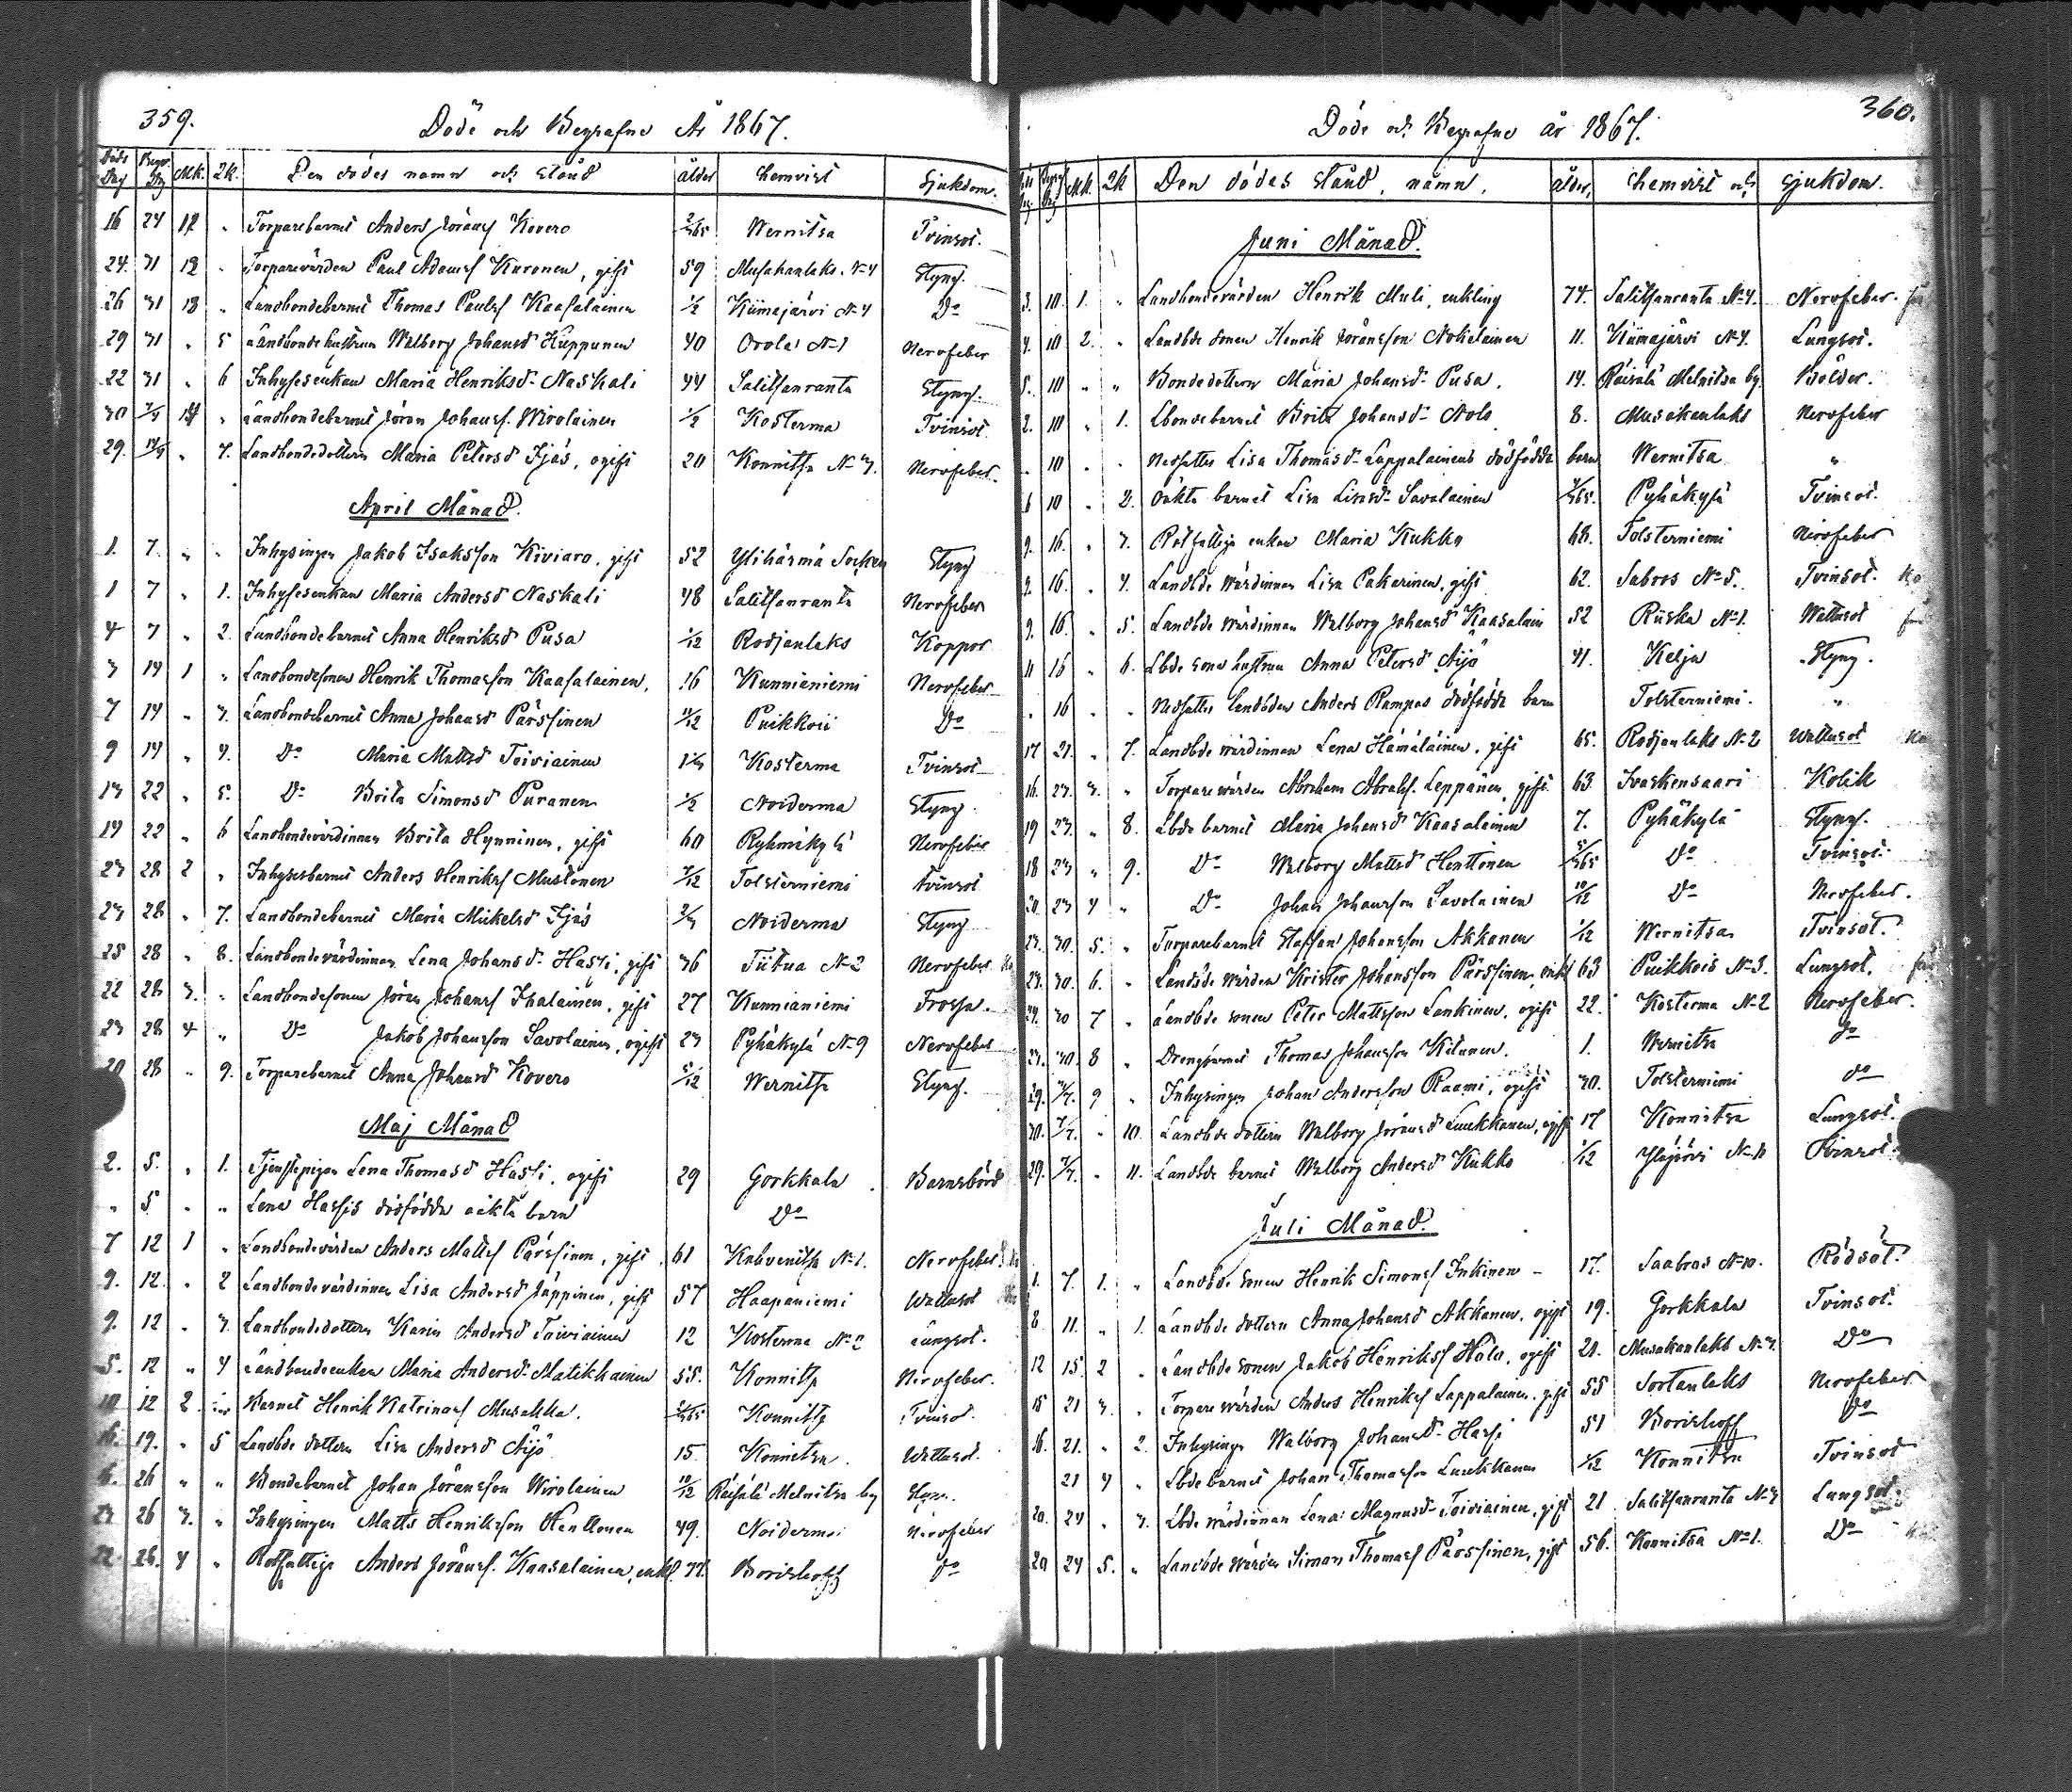 359.
Döde och Begrafne År 1867.
Döds Dag Begr. Dag Mk. Qk. Den dödes namn och stånd ålder hemvist Sjukdom.
16 24 12 " Torparebarnet Anders Jöransf Kovero 2/365 Wernitsa Tvinsot.
24. 31 12 " Torparevärden Paul Adamsf Karonen, gift 59 Musakanlaks. N=4 Styng.
26 31 13 " Landbondebarnet Thomas Paulsf Kaasalainen 1/2 Kiimajärvi N=4 Do
29 31 " 5 Landbondehustrun Walborg Johansd Kuppunen 40 Orola N=1 Nervfeber
22 31 " 6 Inhysesenkan Maria Henriksd Naskali 44 Salitsanranta Styng.
30 7/4 14 " Landbondebarnet Jöran Johansf. Wirolainen 1/2 Kosterma Tvinsot
29. 14/4 " 7. Landbondedottern Maria Petersd Ijäs, ogift 20 Konnitsa N=3. Nervfeber.
April Månad.
1. 7. " " Inhysingen Jakob Isaksson Kiviaro, gift 52 Ylihärmä Socken Styng
1 7 " 1. Inhysesenkan Maria Andersd Naskali 48 Salitsanranta Nervfeber
4 7 " 2. Landbondebarnet Anna Henriksd Pusa 1/12 Rodjanlaks Koppor
3 14 1 " Landbondesonen Henrik Thomasson Kaasalainen. 16 Kunnianiemi Nervfeber
7 14 " 3. Landbondebarnet Anna Johansd Pärssinen 11/12 Puikkoii Do
9 14 " 4. Do Maria Mattsd Toiviainen Kosterma Tvinsot
13 22 " 5. Do Brita Simonsd Puranen 1/2 Noiderma Styng.
19 22 " 6 Landbondevärdinnan Brita Hynninen, gift 60 Ryhmäkylä Nervfeber
23 28 2 " Inhysesbarnet Anders Henriksf Mustonen 7/12 Tolsterniemi Tvinsot
23 28 " 7. Landbondebarnet Maria Mickelsd Ijäs Noiderma Styng
25 28 " 8. Landbondevärdinnan Lena Johansd Hassi, gift 36 Tiitua N=2 Nervfeber
22 28 3. " Landbondesonen Jöran Johansf Ihalainen, gift 27 Kunnianiemi Frossa.
23 28 4 " Do Jakob Johansson Savolainen, ogift 23 Pyhäkylä N=9 Nervfeber
20 28 " 9. Torparebarnet Anna Johansd Kovero 5/12 Wernitsa Styng.
Maj Månad
2. 5. " 1. Tjenstepigan Lena Thomasd Hassi, ogift 29 Gorkkala Barnsbörd
" 5 " " Lena Hassis dödfödda oäkta barn Do
7 12 1 " Landbondevärden Anders Mattsf Pärssinen, gift 61 Kabvenitsa N=1. Nervfeber
9. 12. " 2 Landbondevärdinnan Lisa Andersd Jäppinen, gift 57 Haapaniemi Wattusot
9. 12 " 3. Landbondedottern Karin Andersd Toiviainen 12 Kosterma N=2 Lungsot.
5. 12 " 4 Landbondeenkan Maria Andersd. Matikkainen 55. Konnitsa Nervfeber.
10 12 2. Barnet Henrik Katrinasf Musakka. Konnitsa Tvinsot.
16. 19. " 5 Landbde dottern Lisa Andersd Äijö 15. Konnitsa. Wattusot.
16. 26 " " Bondebarnet Johan Jöransson Wirolainen 10/12 Räisälä Melnitsa by Styng.
23 26 3. " Inhysingen Matts Henriksson Henttonen 49. Noiderma Nervfeber
22 26. 4 " Rotfattige Anders Jöransf. Kaasalainen, enkl. 77. Borishoff do
360.
Döde och Begrafne år 1867.
Mk. Qk Den dödes stånd, namn. ålder. hemvist och sjukdom.
Juni Månad.
3. 10. 1. " Landbondevärden Henrik Muli, enkling 74. Salitsanranta N=4. Nervfeber.
4. 10 2. " Landbde sonen Henrik Jöransson Nokelainen 11. Kiimajärvi N=4. Lungsot.
5. 10 " " Bondedottern Maria Johansd Pusa. 14. Räisälä Melnitsa by. Bölder.
2. 10 " 1. Lbondebarnet Brita Johansd Nolo 8. Musakanlaks Nervfeber
" 10 " " Nedsattes Lisa Thomasd Lappalainens dödfödda barn Wernitsa "
6 10 " 2. Oäkta barnet Lisa Lisasd Savolainen Pyhäkylä Tvinsot.
9. 16. " 3. Rotfattige enkan Maria Kukko 68. Tolsterniemi Nervfeber
9. 16. " 4. Landbde wärdinnan Lisa Pakarinen, gift 62. Sabros N=5. Tvinsot.
9. 16. " 5. Landbde wärdinnan Walborg Johansd Kaasalain 52 Riiska N=1. Wattusot
11 16 " 6. Lbde sons hustrun Anna Petersd Äijö 41. Kelja Styng.
" 16 " " Nedsattes landbden Anders Rampas dödfödda barn Tolsterniemi. "
17 21. " 7. Landbde wärdinnan Lena Hämäläinen, gift 65. Rodjanlaks N=2 Wattusot
16. 23. 3. " Torparevärden Abraham Abrahsf. Leppänen, gift 63. Ivaskensaari Kolik
19 23. " 8. Lbde barnet Maria Johansd Kaasalainen 7. Pyhäkylä Styng.
18 23 " 9. Do Walborg Mattsd Henttonen 5/365 Do Tvinsot.
20. 23 4 " Do Johan Johansson Savolainen 10/12 Do Nervfeber.
23. 30. 5. " Torparebarnet Staffan Johansson Akkanen 1/12 Wernitsa Tvinsot.
23. 30. 6. " Landbde wärden Krister Johansson Pärssinen, enkl 63 Puikkois N=3. Lungsot.
24. 30 7 " Landbde sonen Peter Mattsson Lankinen, ogift 22. Kosterma N=2 Nervfeber.
23. 30. 8 " Drengbarnet Thomas Johansson Kitunen. 1. Wernitsa Do
29. 7/7. 9 " Inhysingen Johan Andersson Raami, ogift 30. Tolsterniemi do
30. 7/7. " 10. Landbde dottern Walborg Jöransd Luukkanen, ogift 17 Konnitsa Lungsot.
29. 7/7. " 11. Landbde barnet Walborg Andersd Kukko 1/12 Yläjärvi N=10 Tvinsot.
Juli Månad.
1. 7. 1. " Landbde sonen Henrik Simonsf Inkinen - 17. Saabros N=10. Rödsot.
8. 11. " 1. Landbde dottern Anna Johansd Akkanen, ogift 19. Gorkkala Tvinsot.
12 15 2 " Landbde sonen Jakob Henriksf Hälo, ogift 21. Musakanlaks N=3. Do
15 21 3. " Torpare wärden Anders Henriksf Lappalainen, gift 55 Sortanlaks Nervfeber
16. 21. " 2. Inhysinge Walborg Johansd Hassi 51 Borishoff Do
21 4 " Lbde barnet Johan Thomasson Luukkanen 1/12 Konnitsa Tvinsot
20. 24 " 3. Lbde wärdinnan Lena Magnusd Toiviainen, gift 21 Salitsanranta N=3 Lungsot.
20 24 5. " Landbde wärden Simon Thomasf Pärssinen, gift 56. Konnitsa N=1. Do